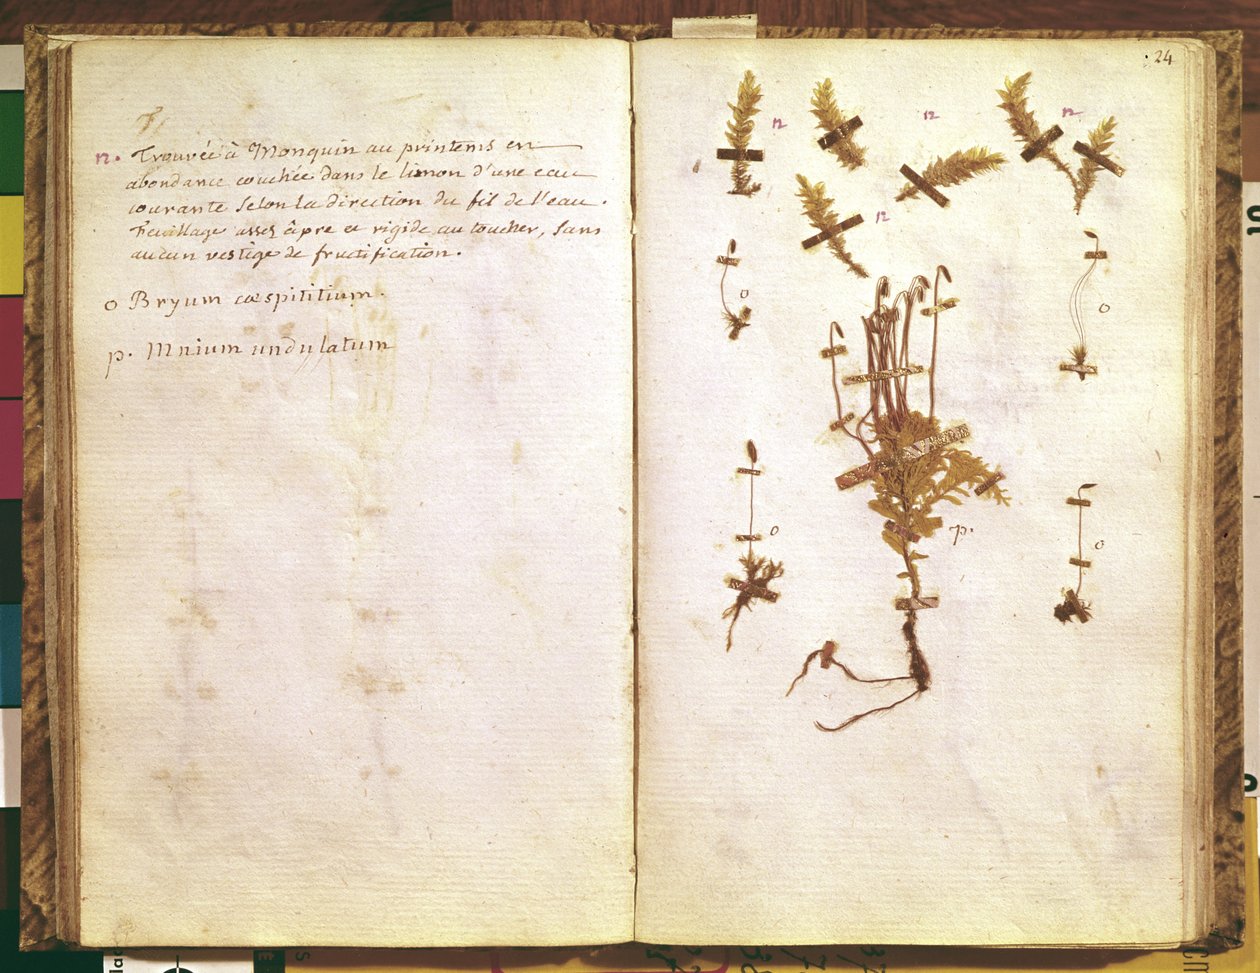 12. Trouvée à Monquin au printems en
abondance couchée dans le limon d'une eau
courante selon la direction du fil de l'eau.
Feuillage assez âpre et rigide au toucher, sans
aucun vestige de fructification.
o Bryum cæspititium.
p. Mnium undulatum
24
12
12
12
12
o
o
o
p.
o